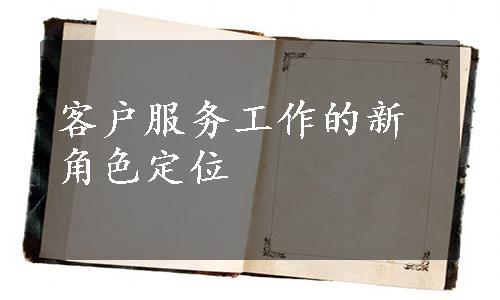 客户服务工作的新
角色定位